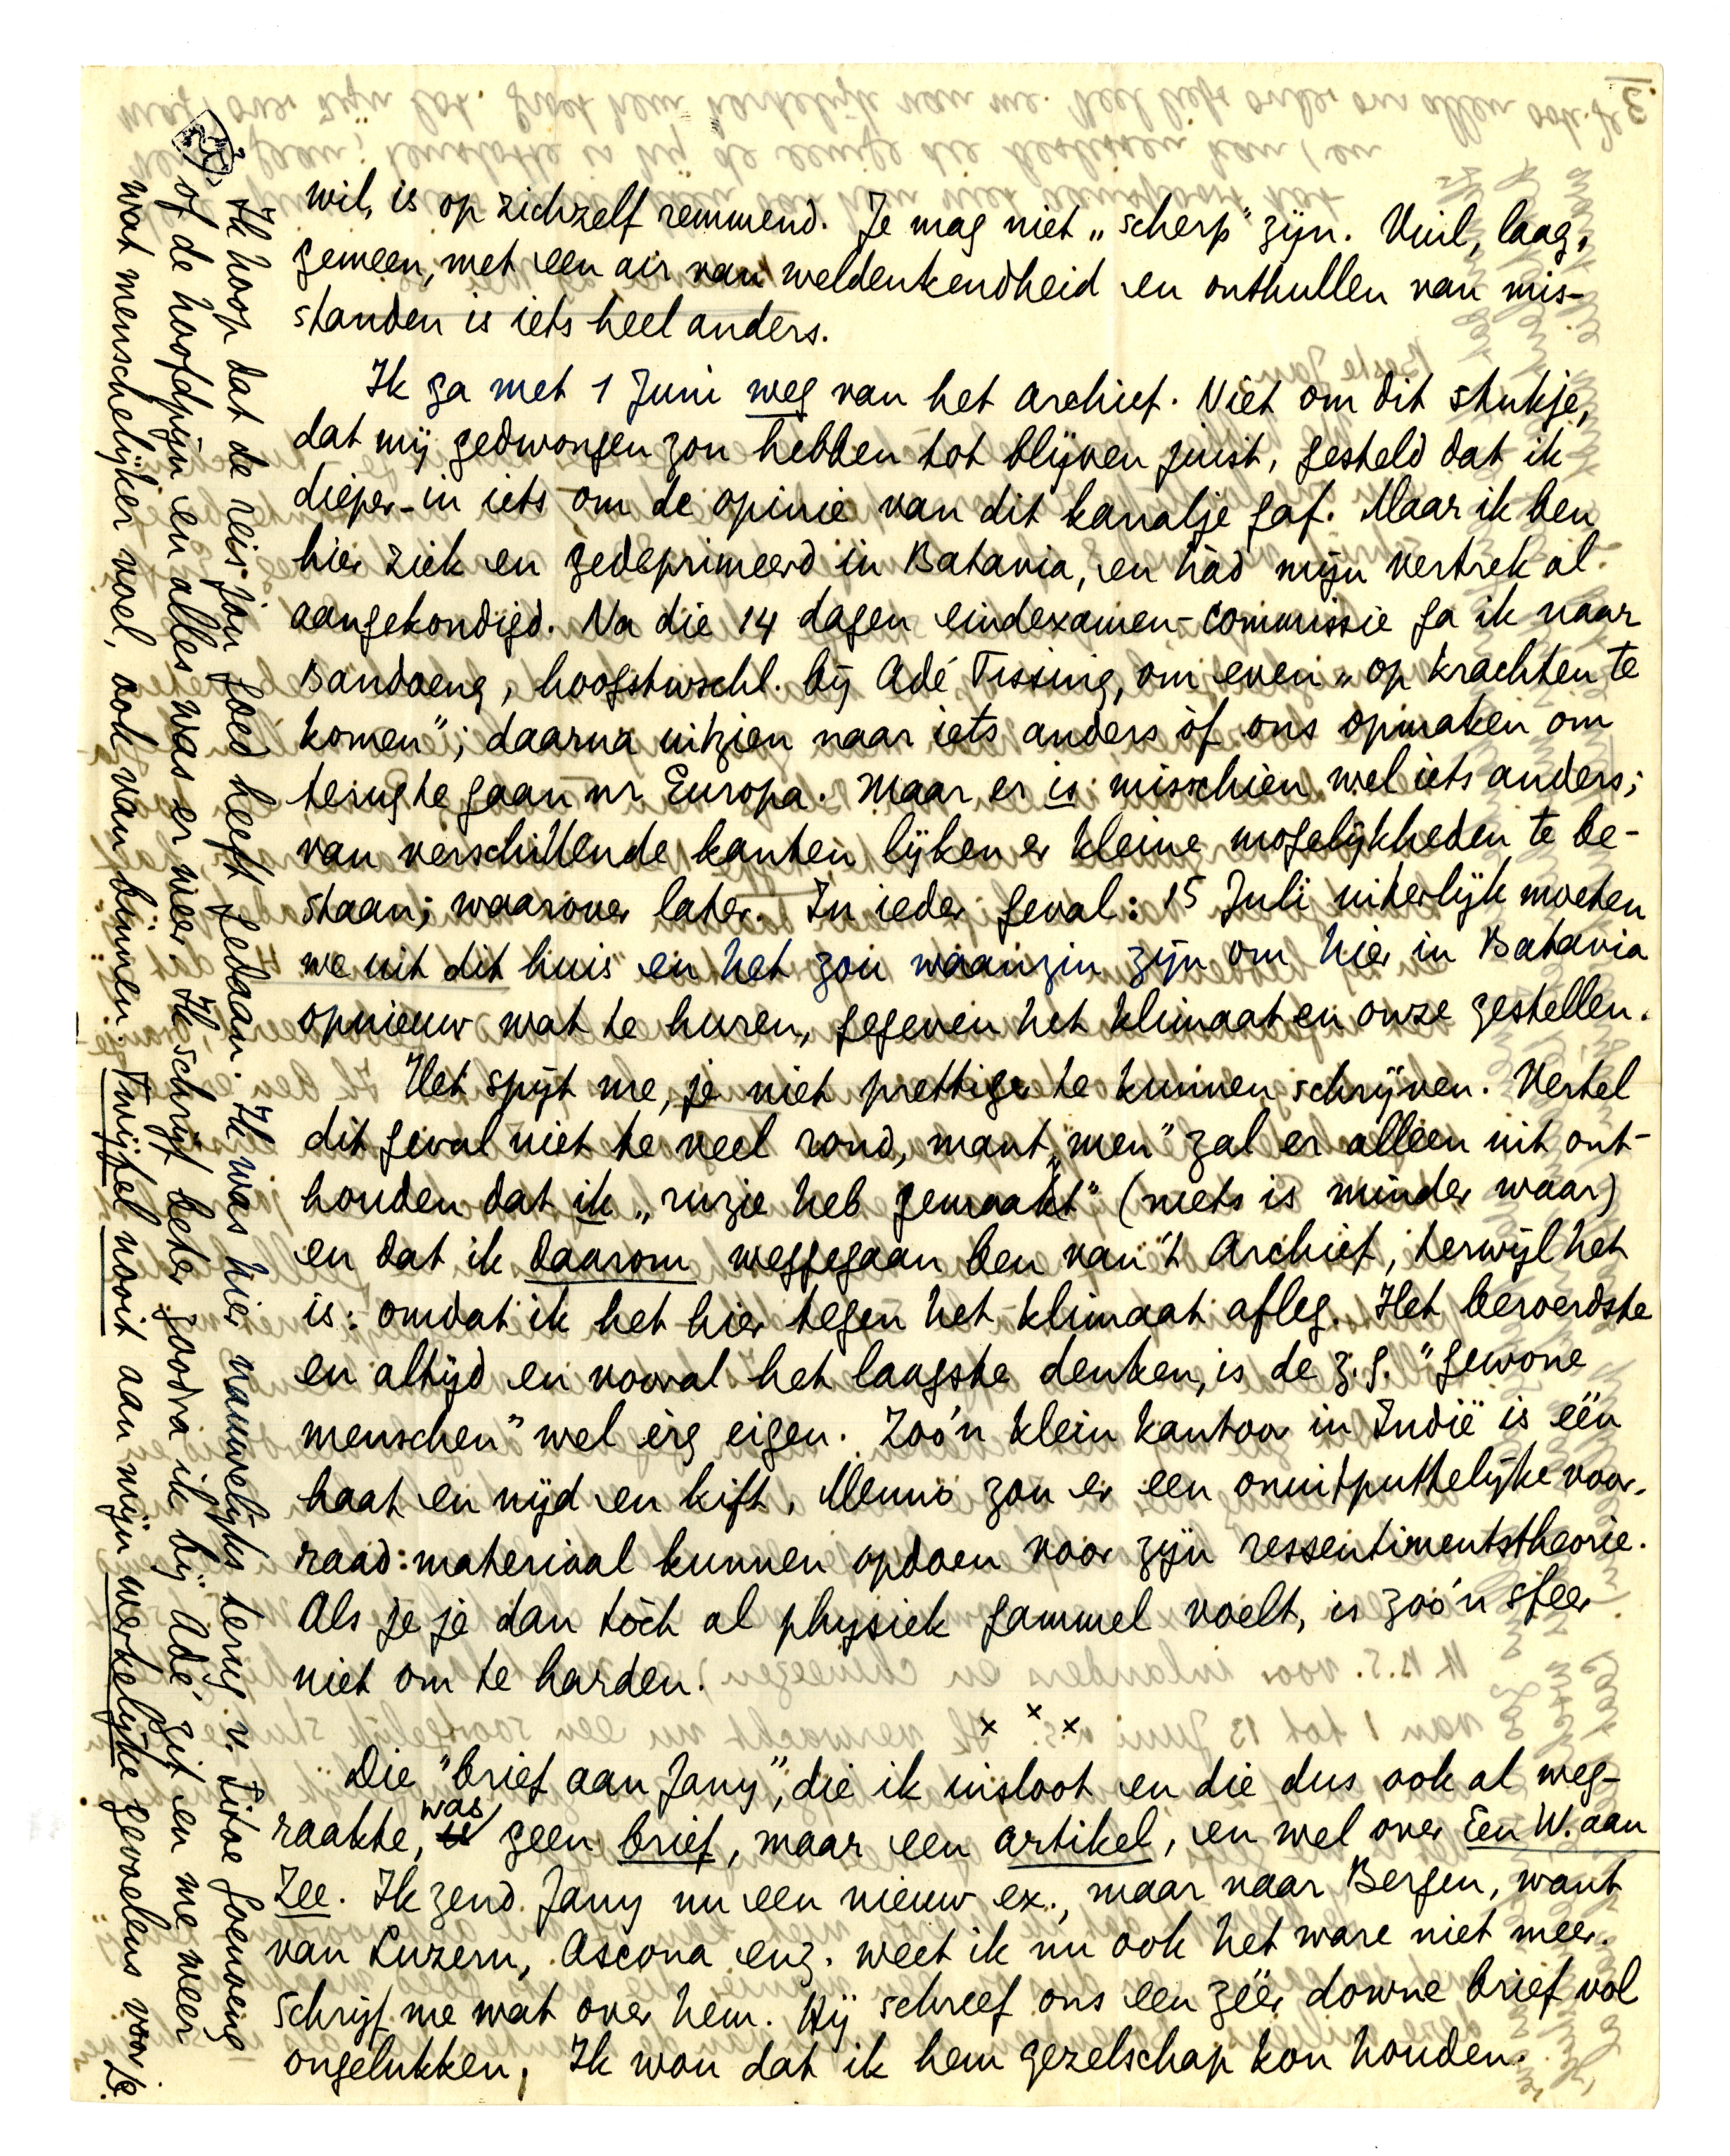 wil, is op zichzelf remmend. Je mag niet „scherp" zijn. Vuil, laag,
gemeen, met een air van weldenkendheid en onthullen van mis-
standen is iets heel anders.
Ik ga met 1 Juni weg van het Archief. Niet om dit stukje,
dat mij gedwongen zou hebben tot blijven juist, gesteld dat ik
dieper-in iets om de opinie van dit kanalje gaf. Maar ik ben
hier ziek en gedeprimeerd in Batavia, en hàd mijn vertrek al
aangekondigd. Na die 14 dagen eindexamen-commissie ga ik naar
Bandoeng, hoogstwschl. bij Adé Tissing, om even „op krachten te
komen"; daarna uitzien naar iets anders òf ons opmaken om
terug te gaan nr Europa. Maar er is misschien wel iets anders;
van verschillende kanten lijken er kleine mogelijkheden te be-
staan; waarover later. In ieder geval: 15 Juli uiterlijk moeten
we uit dit huis en het zou waanzin zijn om hier in Batavia
opnieuw wat te huren, gegeven het klimaat en onze gestellen.
Het spijt me, je niet prettiger te kunnen schrijven. Vertel
dit geval niet te veel rond, want „men" zal er alleen uit ont-
houden dat ik „ruzie heb gemaakt" (niets is minder waar)
en dat ik daarom weggegaan ben van 't Archief, terwijl het
is: omdat ik het hier tegen het klimaat afleg. Het beroerdste
en altijd en vooral het laagste denken, is de z.g. "gewone
menschen" wel èrg eigen. Zoo'n klein kantoor in Indië is één
haat en nijd en kift. Menno zou er een onuitputtelijke voor-
raad materiaal kunnen opdoen voor zijn ressentimentstheorie.
Als je je dan tòch al physiek gammel voelt, is zoo'n sfeer
niet om te harden.
x x x
Die "brief aan Jany", die ik insloot en die dus ook al weg-
raakte, was geen brief, maar een artikel, en wel over Een W. aan
Zee. Ik zend Jany nu een nieuw ex., maar naar Bergen, want
van Luzern, Ascona enz. weet ik nu ook het ware niet meer.
Schrijf me wat over hem. Hij schreef ons een zéér downe brief vol
ongelukken. Ik wou dat ik hem gezelschap kon houden.
Ik hoop dat de reis jou goed heeft gedaan. Ik was hier nauwelijks terug v. Sitoe Goenoeng
of de hoofdpijn en alles was er weer. Ik schrijf beter zoodra ik bij Adé zit en me weer
wat menschelijker voel, ook van binnen. Twijfel nooit aan mijn werkelijke gevoelens voor je.